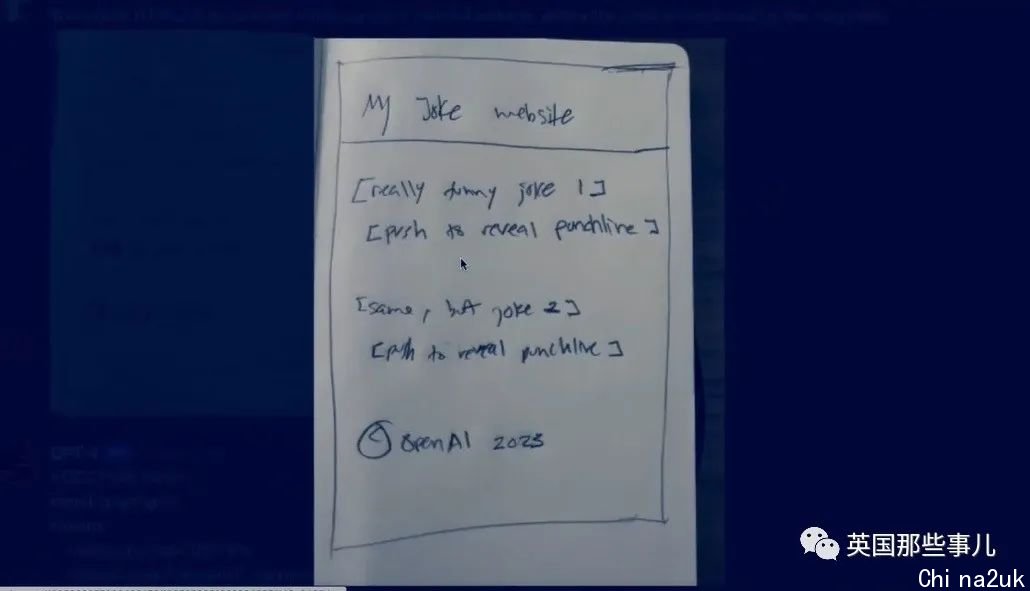 My Joke website
[really funny joke 1]
[push to reveal punchline]
[same, but joke 2]
[push to reveal punchline]
© OpenAI 2023
英国那些事儿
China2uk